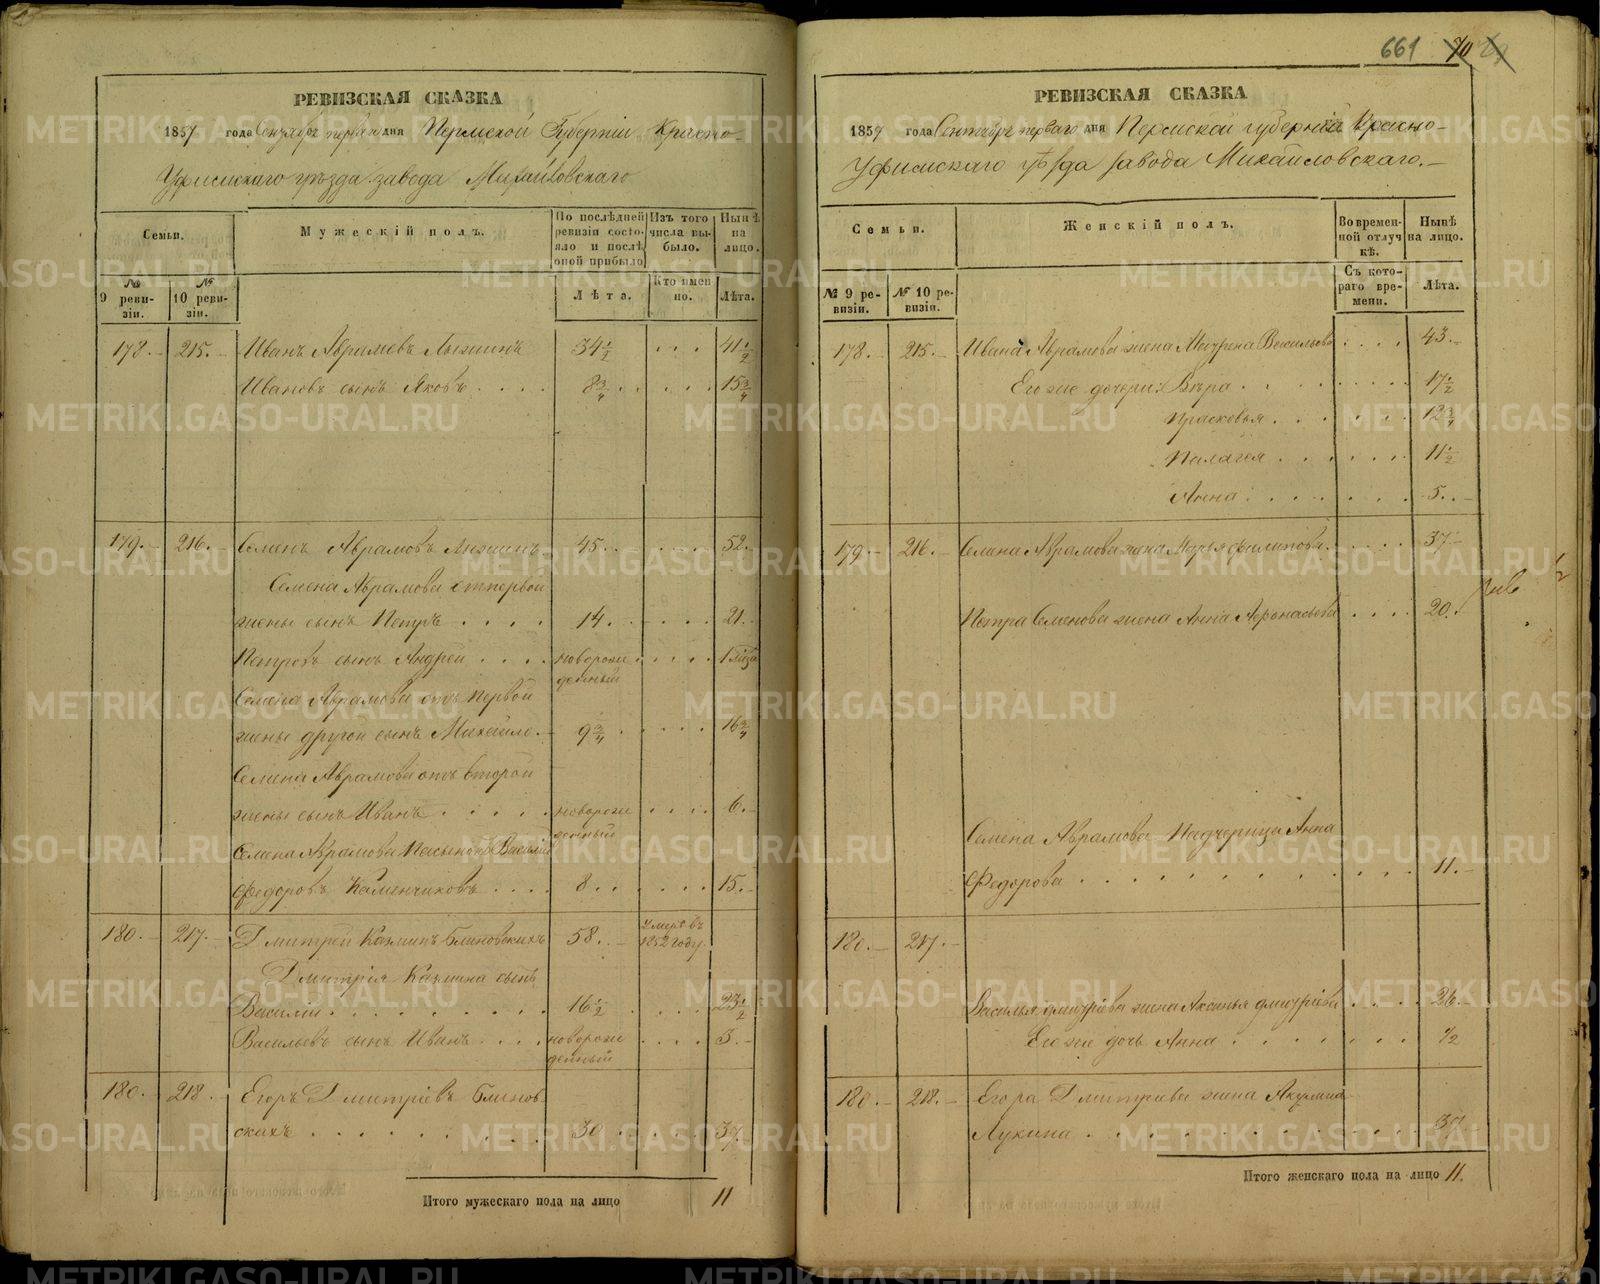 РЕВИЗСКАЯ СКАЗКА
1857 года Сентября первого дня Пермской Губерніи Красно-
Уфимскаго уѣзда завода Михайловскаго
Семьи.
Мужескій полъ.
По послѣдней ревизіи состояло и послѣ оной прибыло
Изъ того числа выбыло.
Нынѣ на лицо.
№ 9 ревизіи.
№ 10 ревизіи.
Лѣта.
Кто имен но.
Лѣта.
178. 215. Иванъ Аврамовъ 34 1/2 41 1/2
Ивановъ сынъ Яковъ 8 3/4 15 3/4
179. 216. Семенъ Аврамовъ 45. 52.
Семена Аврамова отъ первой
жены сынъ Петръ 14. 21.
Петровъ сынъ Андрей новорожденный
Семена Аврамова отъ первой
жены другой сынъ Михайло 9 3/4 16 3/4
Семена Аврамова отъ второй
жены сынъ Иванъ новорожденный 6.
Семена Аврамова Пасынокъ Василій
Федоровъ Каменчиковъ 8. 15.
180. 217. Дмитрей Казминъ Блиновскихъ 58. умеръ въ 1852 году.
Дмитрія Казмина сынъ
Василій 16 1/2 23 1/2
Васильевъ сынъ Иванъ новорожденный 3.
180. 218. Егоръ Дмитріевъ Блинов-
скихъ 30 37
Итого мужескаго пола на лицо 11
661 70
РЕВИЗСКАЯ СКАЗКА
1857 года Сентября перваго дня Пермской губерніи Красно-
Уфимскаго уѣзда завода Михайловскаго.
Семьи.
Женскій полъ.
Во временной отлучкѣ.
Нынѣ на лицо.
№ 9 ревизіи.
№ 10 ревизіи.
Съ котораго времени.
Лѣта.
178. 215. Ивана Аврамова жена Матрена Васильева 43.
Его же дочери: Вѣра 17 1/2
Прасковья 12 3/4
Палагея 11 1/2
Анна 5.
179. 216. Семена Аврамова жена Марья Филипова 37
Петра Семенова жена Анна Афонасьева 20.
Семена Аврамова Падчерица Анна
Федорова 11.
180. 217.
Василья Дмитріева жена Аксинья Дмитріева 26.
Его же дочь Анна 1/2
180. 218. Егора Дмитріева жена Акулина
Лукина 37
Итого женскаго пола на лицо 11.
METRIKI.GASO-URAL.RU